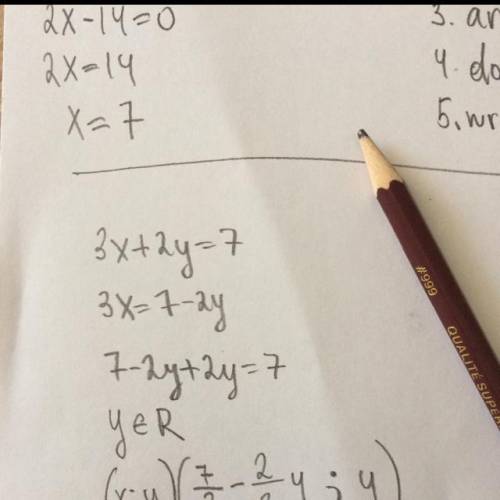 2x-14=0
2x=14
x=7
3. ar
4. do
5. wr
3x+2y=7
3x=7-2y
7-2y+2y=7
y∈R
#999
QUALITÉ SUPÉR